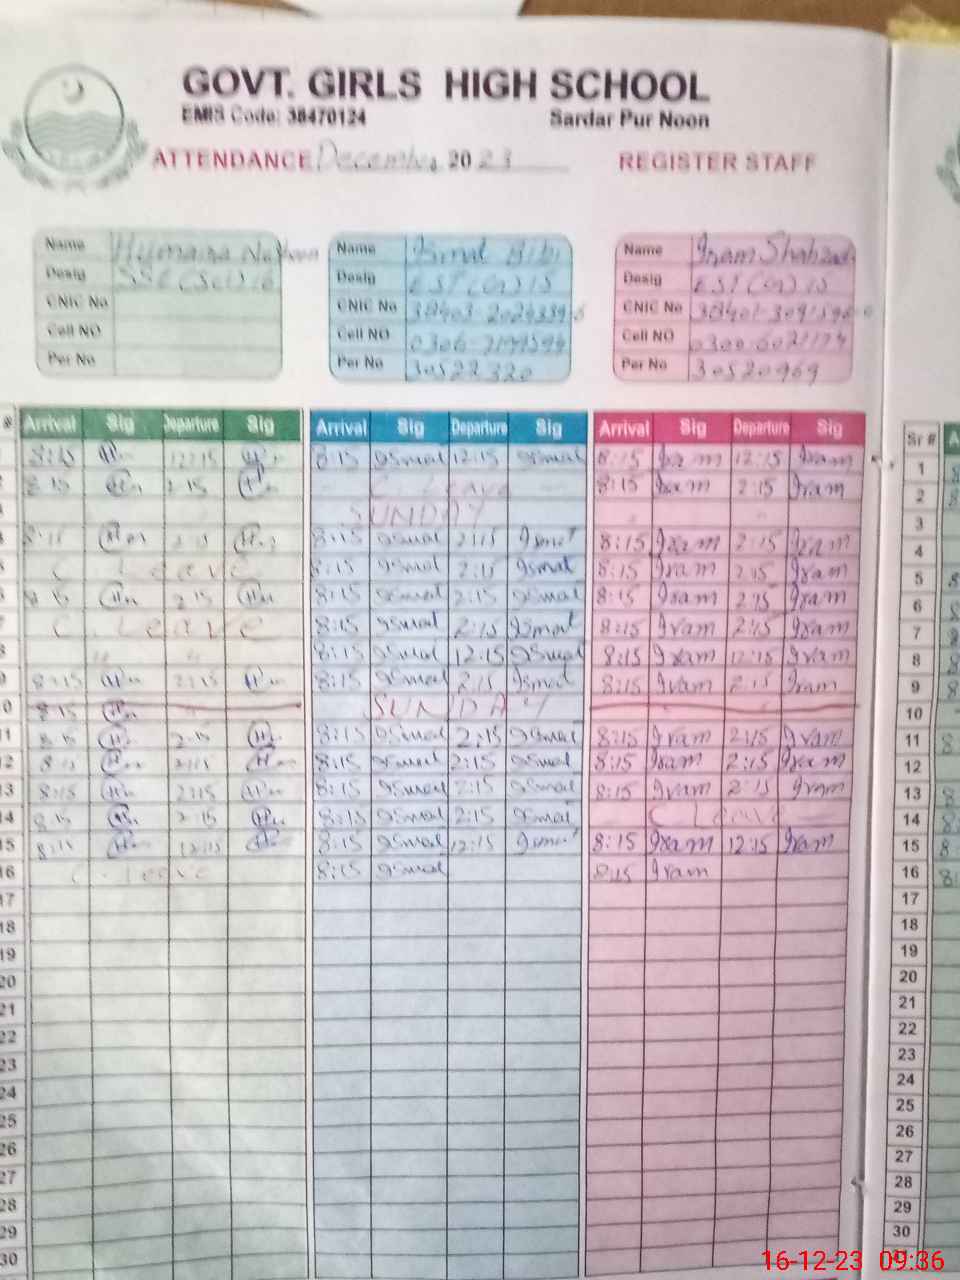 GOVT. GIRLS HIGH SCHOOL
EMIS Code: 38470124 Sardar Pur Noon
ATTENDANCE December 2023 REGISTER STAFF
Name Humaira Name Ismat Bibi Name Iram Shahzadi
Desig SSE (Sci) 16 Desig EST (Gn) 15 Desig EST (Gn) 15
CNIC No CNIC No CNIC No
Cell NO Cell NO Cell NO
Per No Per No 30522320 Per No 30520969
# Arrival Sig Departure Sig Arrival Sig Departure Sig Arrival Sig Departure Sig Sr #
8:15 12:15 8:15 Ismat 12:15 Ismat 8:15 Iram 12:15 Iram 1
8:15 2:15 C. Leave 8:15 Iram 2:15 Iram 2
SUNDAY 3
8:15 2:15 8:15 Ismat 2:15 Ismat 8:15 Iram 2:15 Iram 4
C. Leave 8:15 Ismat 2:15 Ismat 8:15 Iram 2:15 Iram 5
8:15 2:15 8:15 Ismat 2:15 Ismat 8:15 Iram 2:15 Iram 6
C. Leave 8:15 Ismat 2:15 Ismat 8:15 Iram 2:15 Iram 7
" " 8:15 Ismat 12:15 Ismat 8:15 Iram 12:15 Iram 8
8:15 2:15 8:15 Ismat 2:15 Ismat 8:15 Iram 2:15 Iram 9
8:15 SUNDAY 10
11 8:15 2:15 8:15 Ismat 2:15 Ismat 8:15 Iram 2:15 Iram 11
12 8:15 2:15 8:15 Ismat 2:15 Ismat 8:15 Iram 2:15 Iram 12
13 8:15 2:15 8:15 Ismat 2:15 Ismat 8:15 Iram 2:15 Iram 13
14 8:15 2:15 8:15 Ismat 2:15 Ismat C Leave 14
15 8:15 12:15 8:15 Ismat 12:15 Ismat 8:15 Iram 12:15 Iram 15
16 C. Leave 8:15 Ismat 8:15 Iram 16
17 17
18 18
19 19
20 20
21 21
22 22
23 23
24 24
25 25
26 26
27 27
28 28
29 29
30 30
16-12-23 09:36